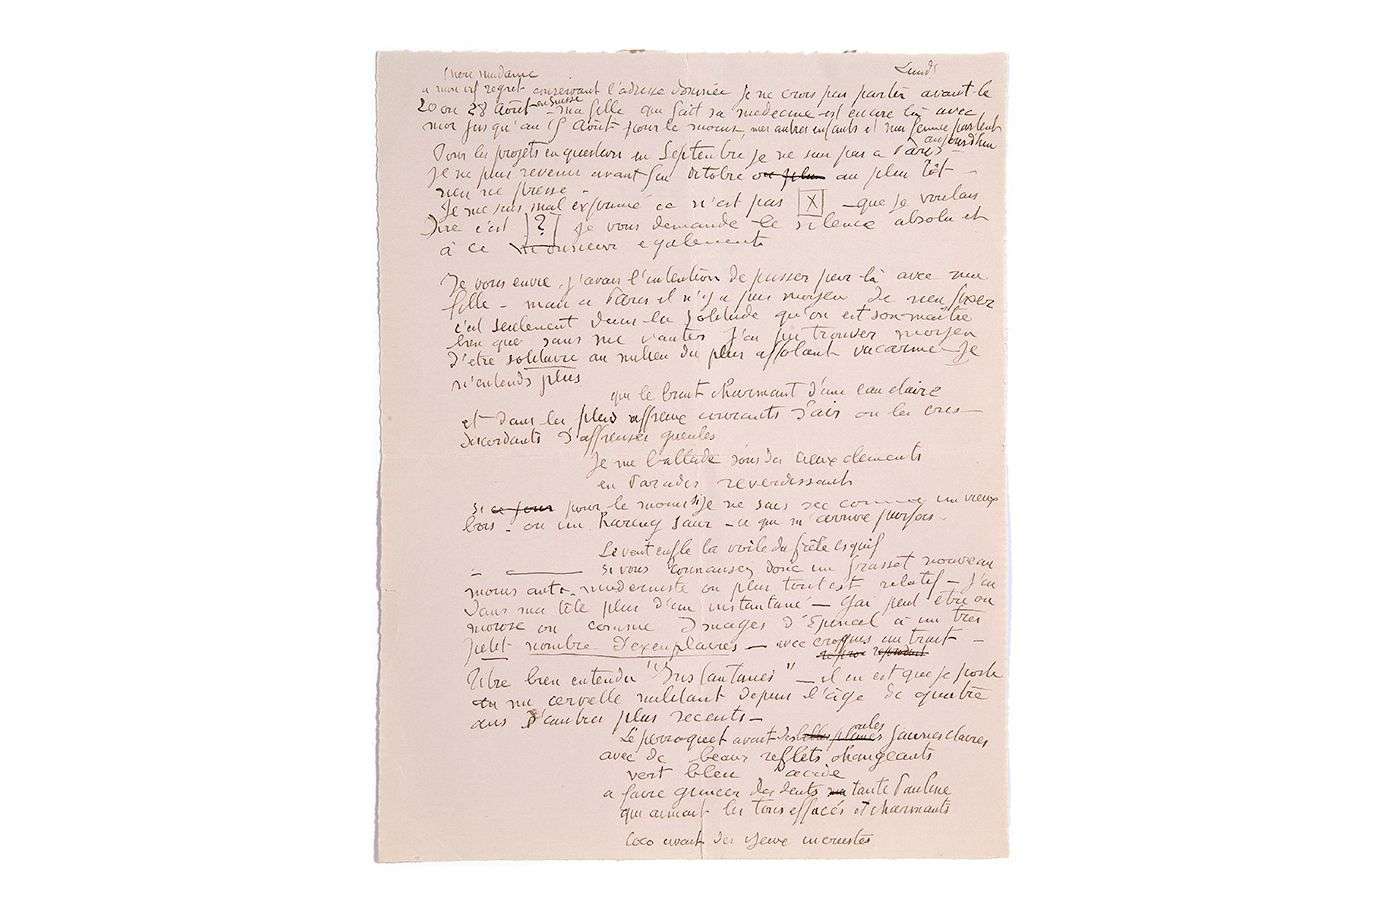 Lundi
Chère Madame
à mon vif regret concernant l'adresse donnée je ne crois pas partir avant le
20 ou 28 Août en Suisse - ma fille qui fait sa medecine est encore là avec
moi jusqu'au 15 Août pour le moins, mes autres enfants et ma femme partent
aujourd'hui
Pour les projets en question en Septembre je ne suis pas à Paris -
Je ne puis revenir avant fin Octobre ou plus au plus tôt -
rien ne presse -
Je me suis mal exprimé ce n'est pas X - que je voulais
Dire c'est ? je vous demande le silence absolu et
à ce Monsieur egalement
Je vous envie, j'avais l'intention de passer par là avec ma
fille - mais à Paris il n'y a pas moyen de rien fixer
c'est seulement dans la solitude qu'on est son maître
bien que sans me vanter j'ai pu trouver moyen
d'être solitaire au milieu du plus affolant vacarme Je
n'entends plus
que le bruit charmant d'une eau claire
et dans les plus affreux courants d'air ou les cris
discordants d'affreuses gueules
Je me ballade sous des cieux clements
en Paradis reverdissants
Si ce jour pour le moins si je ne suis sec comme un vieux
bois - ou un hareng saur - ce qui m'arrive parfois -
Le vent enfle la voile du frêle esquif
si vous connaissez donc un Grasset nouveau
moins anti-moderniste ou plus tout est relatif - J'ai
dans ma tête plus d'un instantané - Gai peut être ou
morose ou comme Images d'Epinal à un très
petit nombre d'exemplaires - avec croquis au trait -
Titre bien entendu "Instantanés" - il en est que je porte
en ma cervelle depuis l'âge de quatre
ans d'autres plus recents -
Le perroquet avait des ailes jaunes claires
avec de beaux reflets changeants
vert bleu acide
à faire grincer des dents ma tante Pauline
qui aimait les tons effacés et charmants
Coco avait des yeux incrustés